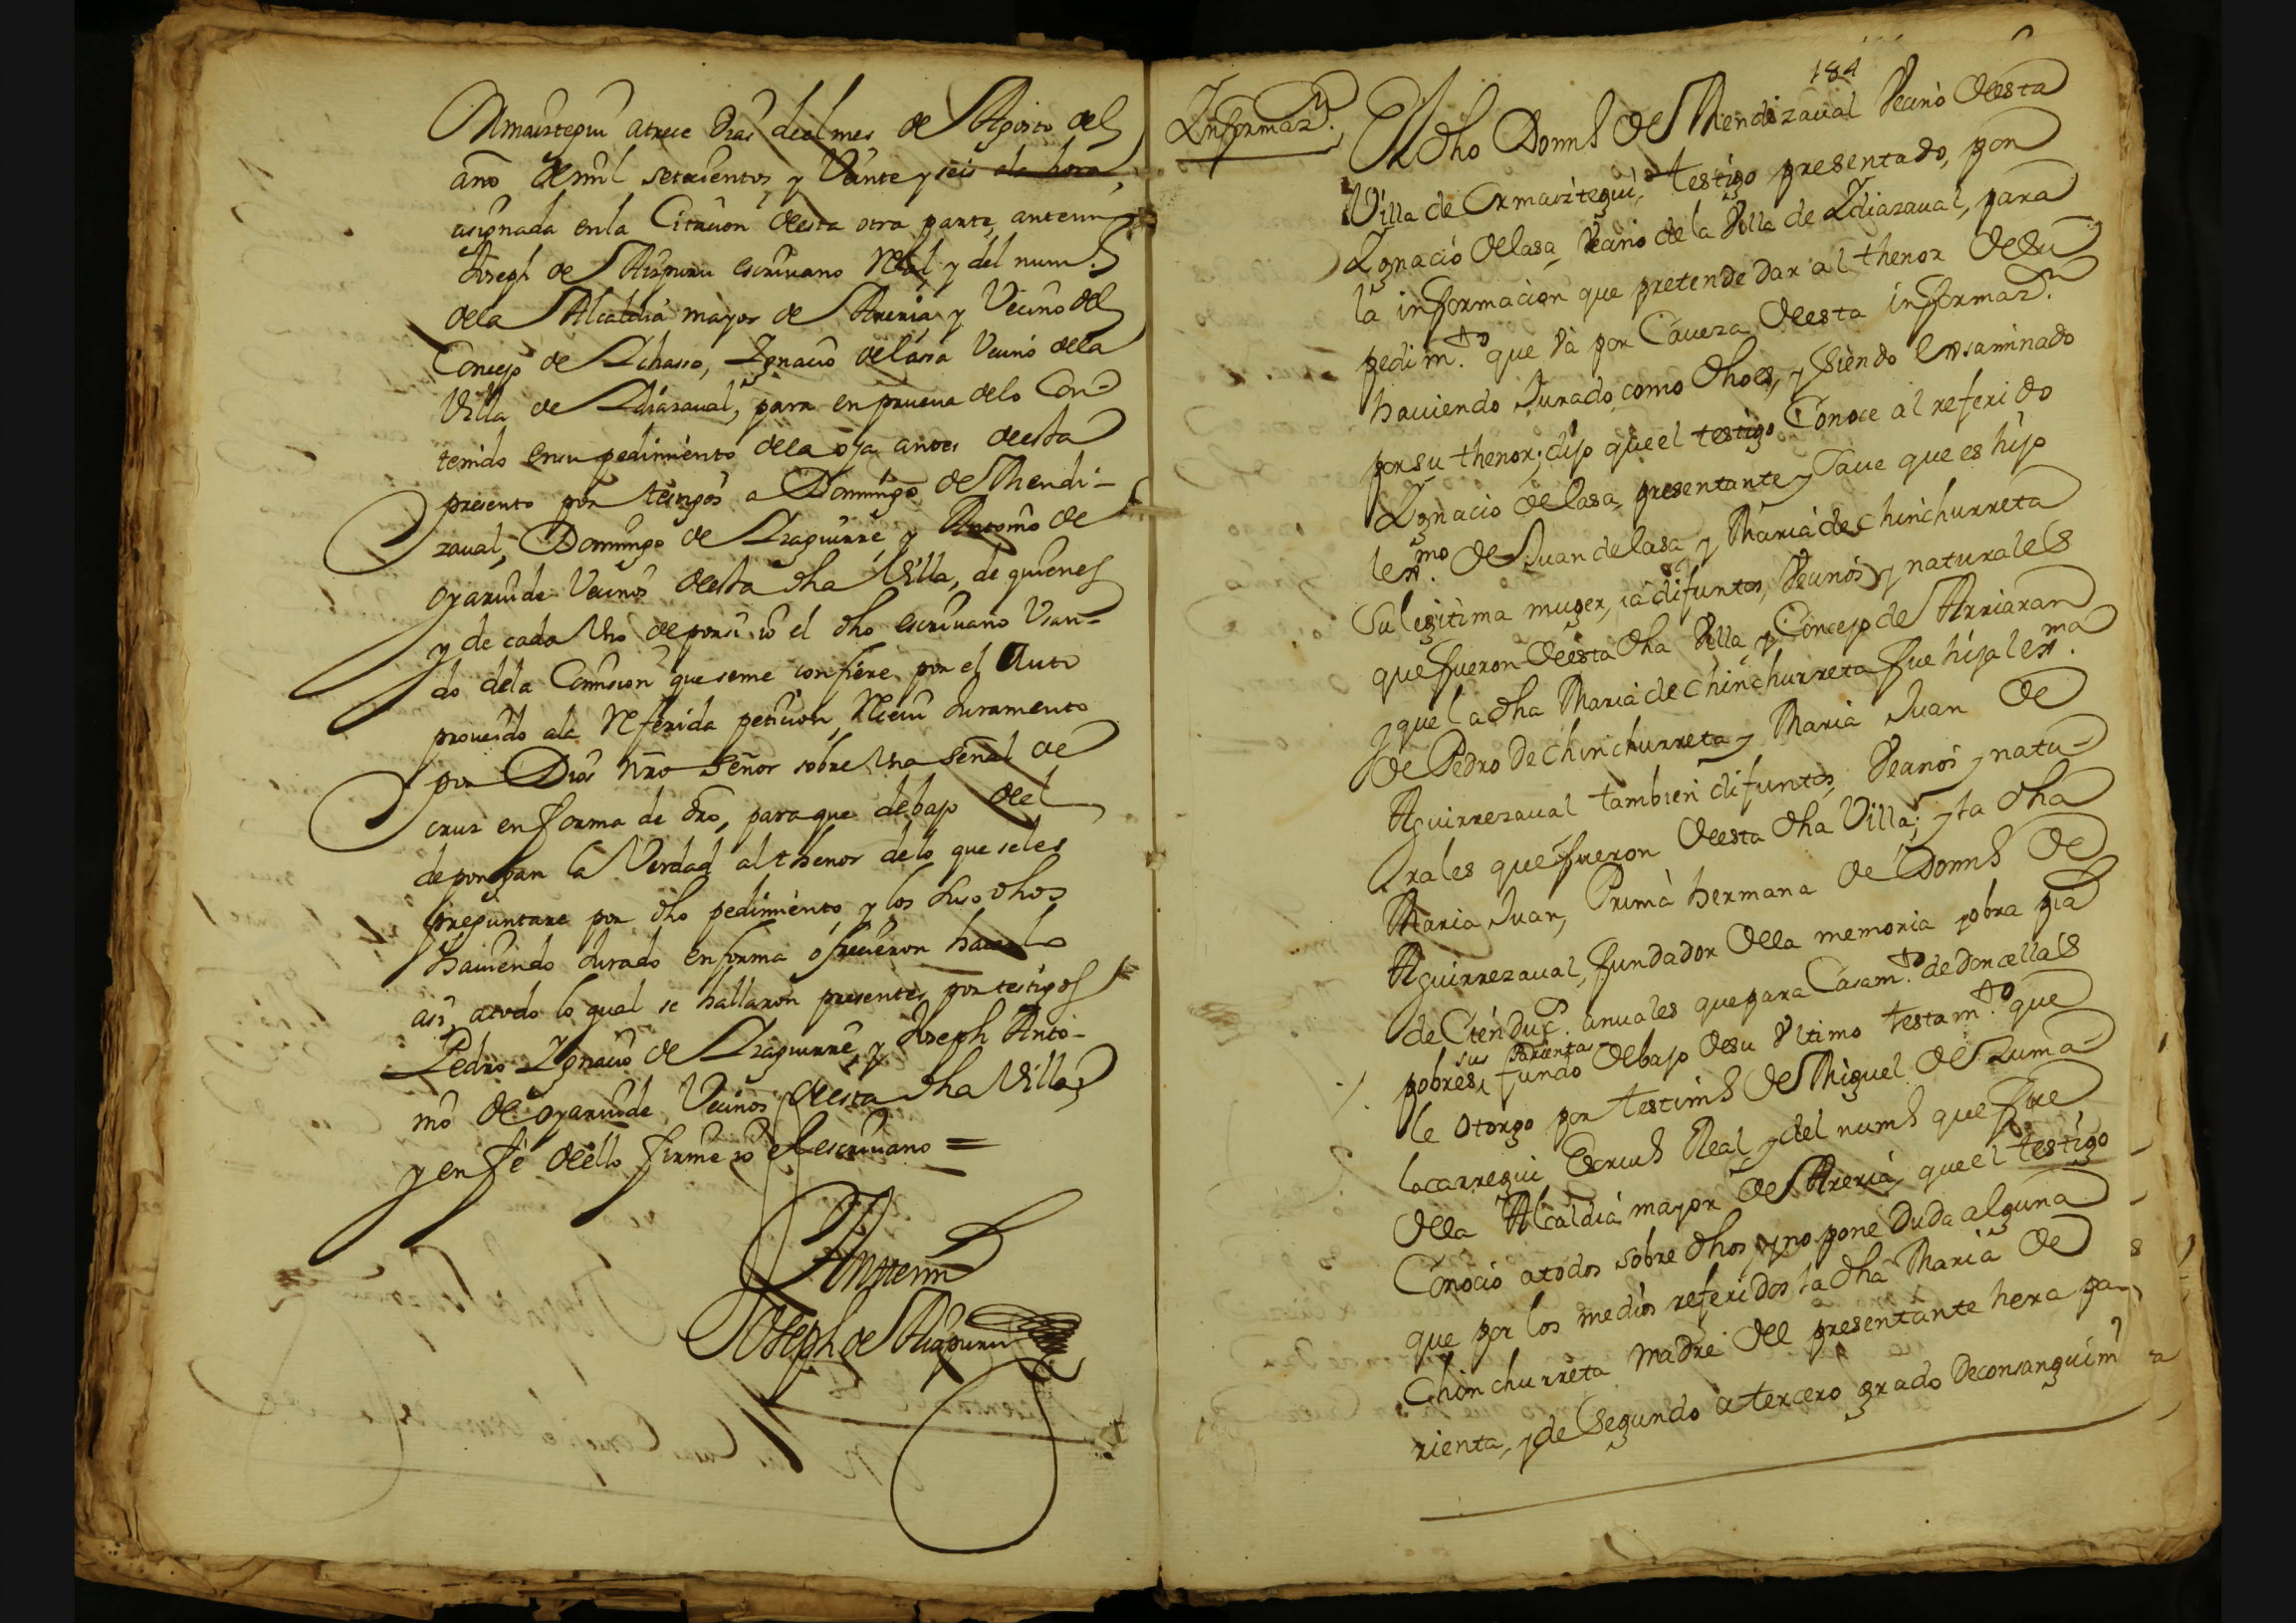 Ormaiztegui a trece dias del mes de Agosto del
año de mil setecientos y Veinte y seis a la hora
asignada en la Citacion desta otra parte, ante mi
Joseph de Aizpuru escriuano Real y del num.º
de la Alcaldia mayor de Areria y Vecino del
Concejo de Ichasso, Ignacio de lassa Vecino de la
Villa de Idiazaual, para en prueua de lo Con-
tenido en su pedimiento de la oja antes desta
presento por testigos a Domingo de Mendi-
zaual, Domingo de Izaguirre y Antonio de
oyaruide Vecinos desta dha Villa, de quienes
y de cada Vno de por si io el dho escriuano Vsan-
do de la Comision que se me confiere por el Auto
proueido a la Referida peticion, Reciui Juramento
por Dios nro Señor sobre Vna Señal de
cruz en forma de dro, para que debajo del
depongan la Verdad al thenor de lo que se les
preguntare por dho pedimiento y los suso dhos
hauiendo Jurado en forma ofrecieron hacerlo
asi, a todo lo qual se hallaron presentes por testigos
Pedro Ygnacio de Izaguirre y Joseph Anto-
nio de oyaruide Vecinos desta dha Villa,
y en fe dello firme io el escriuano =
Ante mi
Joseph de Aizpuru
184
Informaz.n
El dho Dom.º de Mendizaual Vecino desta
Villa de Ormaiztegui, testigo presentado, por
Ignacio de lasa, Vecino de la Villa de Idiazaual, para
la informacion que pretende dar al thenor de su
pedim.to que Va por Caueza desta informaz.n
hauiendo Jurado como dho es, y siendo examinado
por su thenor; dijo que el testigo Conoce al referido
Ignacio de lasa, presentante y saue que es hijo
lex.mo de Juan de lasa y Maria de Chinchurreta
su legitima muger, ia difuntos, Vecinos y naturales
que fueron desta dha Villa y Concejo de Arriaran
y que la dha Maria de Chinchurreta fue hija lex.ma
de Pedro de Chinchurreta y Maria Juan de
Aguirrezaual tambien difuntos, Vecinos y natu-
rales que fueron desta dha Villa; y la dha
Maria Juan, Prima hermana de Dom.º de
Aguirrezaual, fundador de la memoria y obra pia
de Cien duc.s anuales que para Casam.to de doncellas
pobres sus Parientas fundo debajo de su Vltimo testam.to que
le otorgo por testim.º de Miguel de Zuma-
lacarregui Escriu.º Real y del num.º que fue
de la Alcaldia mayor de Areria, que el testigo
Conocio a todos sobre dhos, y no pone duda alguna
que por los medios referidos la dha Maria de
Chinchurreta madre del presentante hera pa-
rienta, y de segundo a tercero grado de consanguini